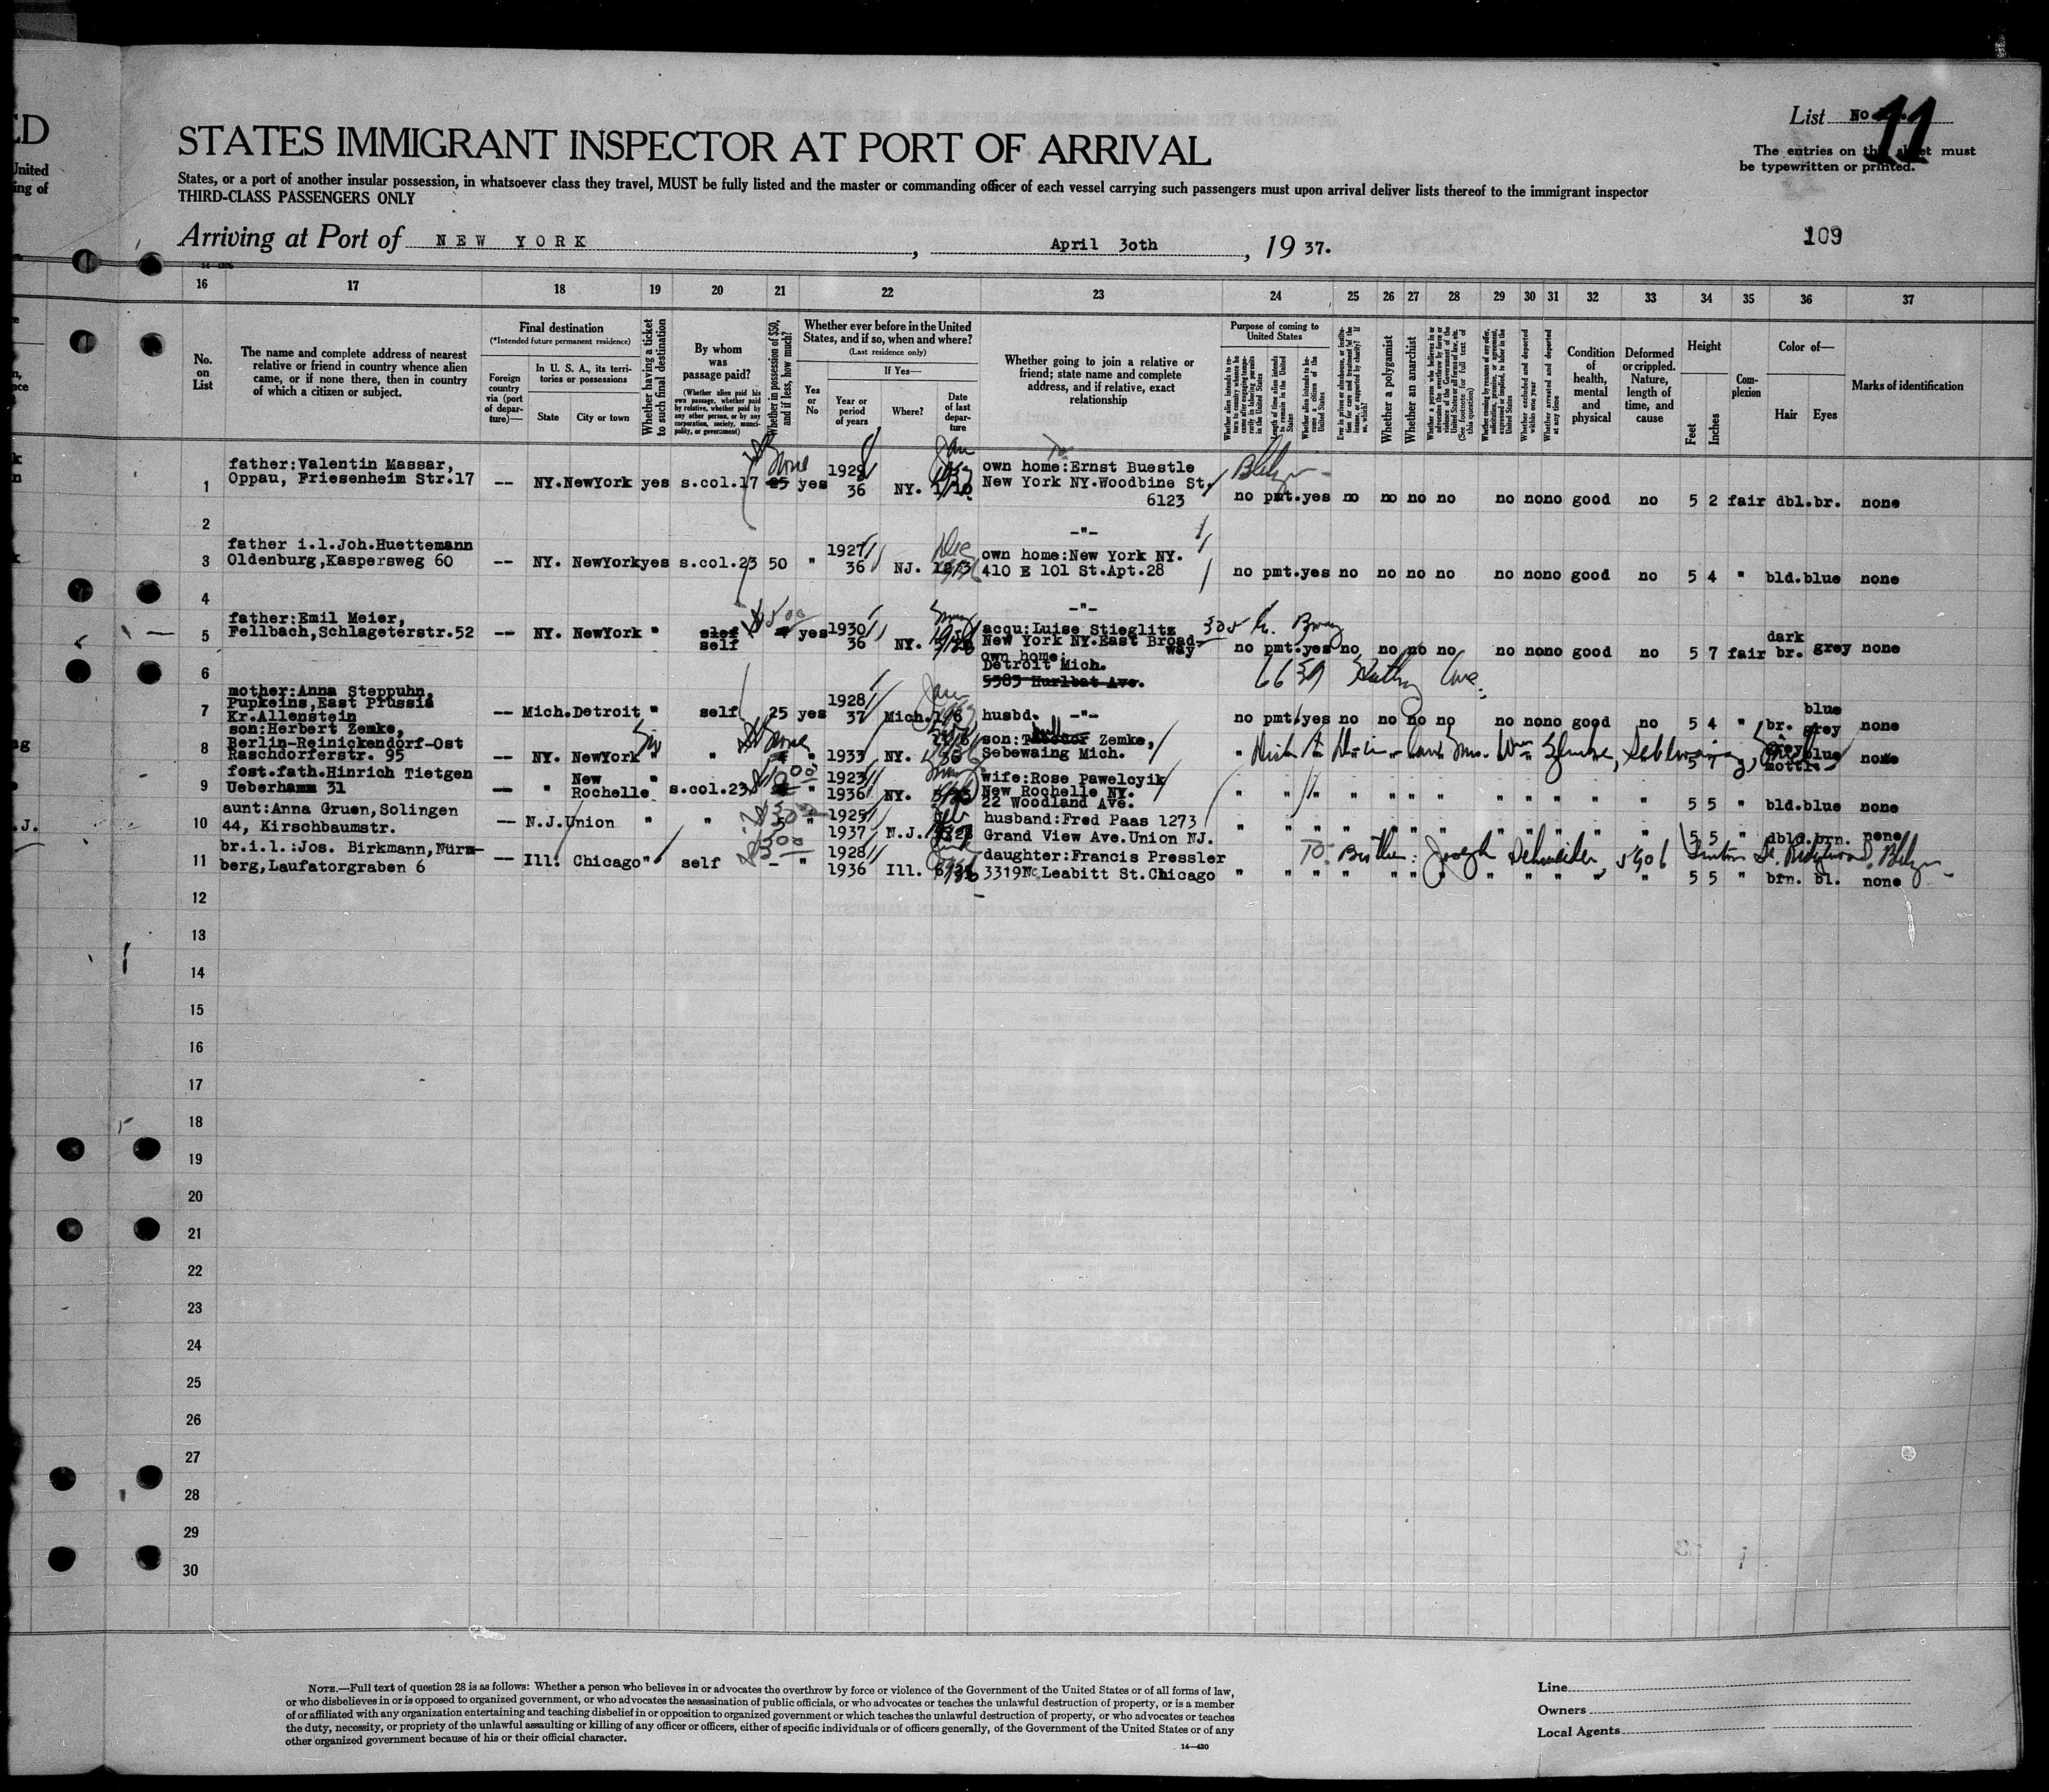 ED
List No 11
STATES IMMIGRANT INSPECTOR AT PORT OF ARRIVAL
The entries on this sheet must
be typewritten or printed.
United
ing of
States, or a port of another insular possession, in whatsoever class they travel, MUST be fully listed and the master or commanding officer of each vessel carrying such passengers must upon arrival deliver lists thereof to the immigrant inspector
THIRD-CLASS PASSENGERS ONLY
Arriving at Port of NEW YORK, April 30th, 19 37.
109
16 17 18 19 20 21 22 23 24 25 26 27 28 29 30 31 32 33 34 35 36 37
No. on List
The name and complete address of nearest relative or friend in country whence alien came, or if none there, then in country of which a citizen or subject.
Final destination
(*Intended future permanent residence)
Foreign country via (port of departure)—
In U. S. A., its territories or possessions
State
City or town
Whether having a ticket to such final destination
By whom was passage paid?
(Whether alien paid his own passage, whether paid by relative, whether paid by any other person, or by any corporation, society, municipality, or government)
Whether in possession of $50, and if less, how much?
Whether ever before in the United States, and if so, when and where?
(Last residence only)
Yes or No
If Yes—
Year or period of years
Where?
Date of last departure
Whether going to join a relative or friend; state name and complete address, and if relative, exact relationship
Purpose of coming to United States
Whether alien intends to return to country whence he came after engaging temporarily in laboring pursuits in the United States
Length of time alien intends to remain in the United States
Whether alien intends to become a citizen of the United States
Ever in prison or almshouse, or institution for care and treatment of the insane, or supported by charity? If so, which?
Whether a polygamist
Whether an anarchist
(See footnote for full text of this question)
Whether coming by reason of any offer, solicitation, promise, or agreement, expressed or implied, to labor in the United States
Whether excluded and deported within one year
Whether arrested and deported at any time
Condition of health, mental and physical
Deformed or crippled. Nature, length of time, and cause
Height
Feet
Inches
Complexion
Color of—
Hair
Eyes
Marks of identification
father:Valentin Massar,
1 Oppau, Friesenheim Str.17 -- NY.NewYork yes s.col.17 25 none yes 1929 36 NY. Jan own home:Ernst Buestle
New York NY.Woodbine St.
6123 no pmt.yes no no no no no nono good no 5 2 fair dbl.br. none
2 -"-
father i.l.Joh.Huettemann
3 Oldenburg,Kaspersweg 60 -- NY. NewYorkyes s.col.23 50 " 1927 36 NJ. own home:New York NY.
410 E 101 St.Apt.28 no pmt.yes no no no no no nono good no 5 4 " bld.blue none
4 -"-
father:Emil Meier,
5 Fellbach,Schlageterstr.52 -- NY. NewYork " slef self yes 1930 36 NY. acqu:Luise Stieglitz 305 E. Bway
New York NY.East Broadway no pmt.yes no no no no no nono good no 5 7 fair dark br. grey none
6 own home:
Detroit Mich.
5383 Hurlbat Ave. 6639 Ave.
mother:Anna Steppuhn,
Pupkeins,East Prussia
7 Kr.Allenstein -- Mich.Detroit " self 25 yes 1928 37 Mich. Jan husbd. -"- no pmt.yes no no no no no nono good no 5 4 " br. blue grey none
son:Herbert Zemke,
8 Berlin-Reinickendorf-Ost
Raschdorferstr. 95 -- NY. NewYork " " none " 1933 NY. son: Zemke,
Sebewaing Mich. " 5 7 grey mottl. blue none
fost.fath.Hinrich Tietgen
9 Ueberhamm 31 -- " New Rochelle " s.col.23 " 1923 1936 NY. wife:Rose Pawelcyik
New Rochelle NY.
22 Woodland Ave. " " " " " " " " " " " " " 5 5 " bld.blue none
aunt:Anna Gruen,Solingen
10 44, Kirschbaumstr. -- N.J.Union " " " 1925 1937 N.J. husband:Fred Paas 1273
Grand View Ave.Union NJ. " " " " " " " " " " " " " 5 5 " dbld.brn. none
br.i.l.:Jos. Birkmann,Nürn-
11 berg,Laufatorgraben 6 -- Ill. Chicago " self - " 1928 1936 Ill. daughter:Francis Pressler
3319 N. Leabitt St.Chicago TO: Brother: Joseph Schneider, 5906 St. Ridgewood, Bklyn
" " " " " " " " " " " " " 5 5 " brn. bl. none
12
13
14
15
16
17
18
19
20
21
22
23
24
25
26
27
28
29
30
NOTE.—Full text of question 28 is as follows: Whether a person who believes in or advocates the overthrow by force or violence of the Government of the United States or of all forms of law,
or who disbelieves in or is opposed to organized government, or who advocates the assassination of public officials, or who advocates or teaches the unlawful destruction of property, or is a member
of or affiliated with any organization entertaining and teaching disbelief in or opposition to organized government or which teaches the unlawful destruction of property, or who advocates or teaches
the duty, necessity, or propriety of the unlawful assaulting or killing of any officer or officers, either of specific individuals or of officers generally, of the Government of the United States or of any
other organized government because of his or their official character.
14—430
Line
Owners
Local Agents